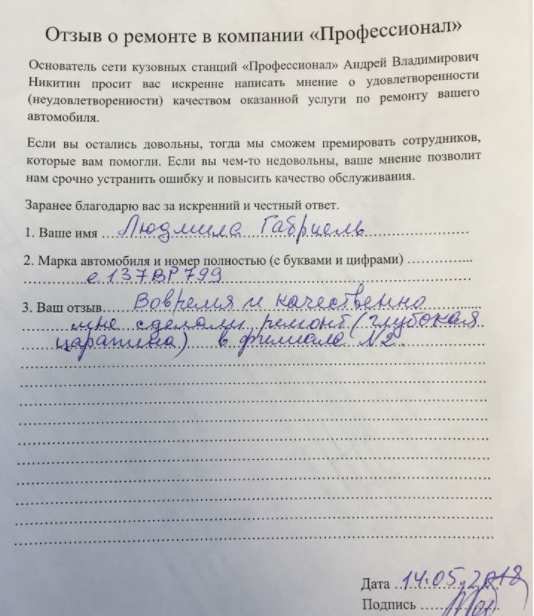 Отзыв о ремонте в компании «Профессионал»
Основатель сети кузовных станций «Профессионал» Андрей Владимирович
Никитин просит вас искренне написать мнение о удовлетворенности
(неудовлетворенности) качеством оказанной услуги по ремонту вашего
автомобиля.
Если вы остались довольны, тогда мы сможем премировать сотрудников,
которые вам помогли. Если вы чем-то недовольны, ваше мнение позволит
нам срочно устранить ошибку и повысить качество обслуживания.
Заранее благодарю вас за искренний и честный ответ.
1. Ваше имя Людмила Габриель
2. Марка автомобиля и номер полностью (с буквами и цифрами)
е 137 ВР 799
3. Ваш отзыв Вовремя и качественно
мне сделали ремонт (глубокая
царапина) в филиале №2
Дата 14.05.2018
Подпись